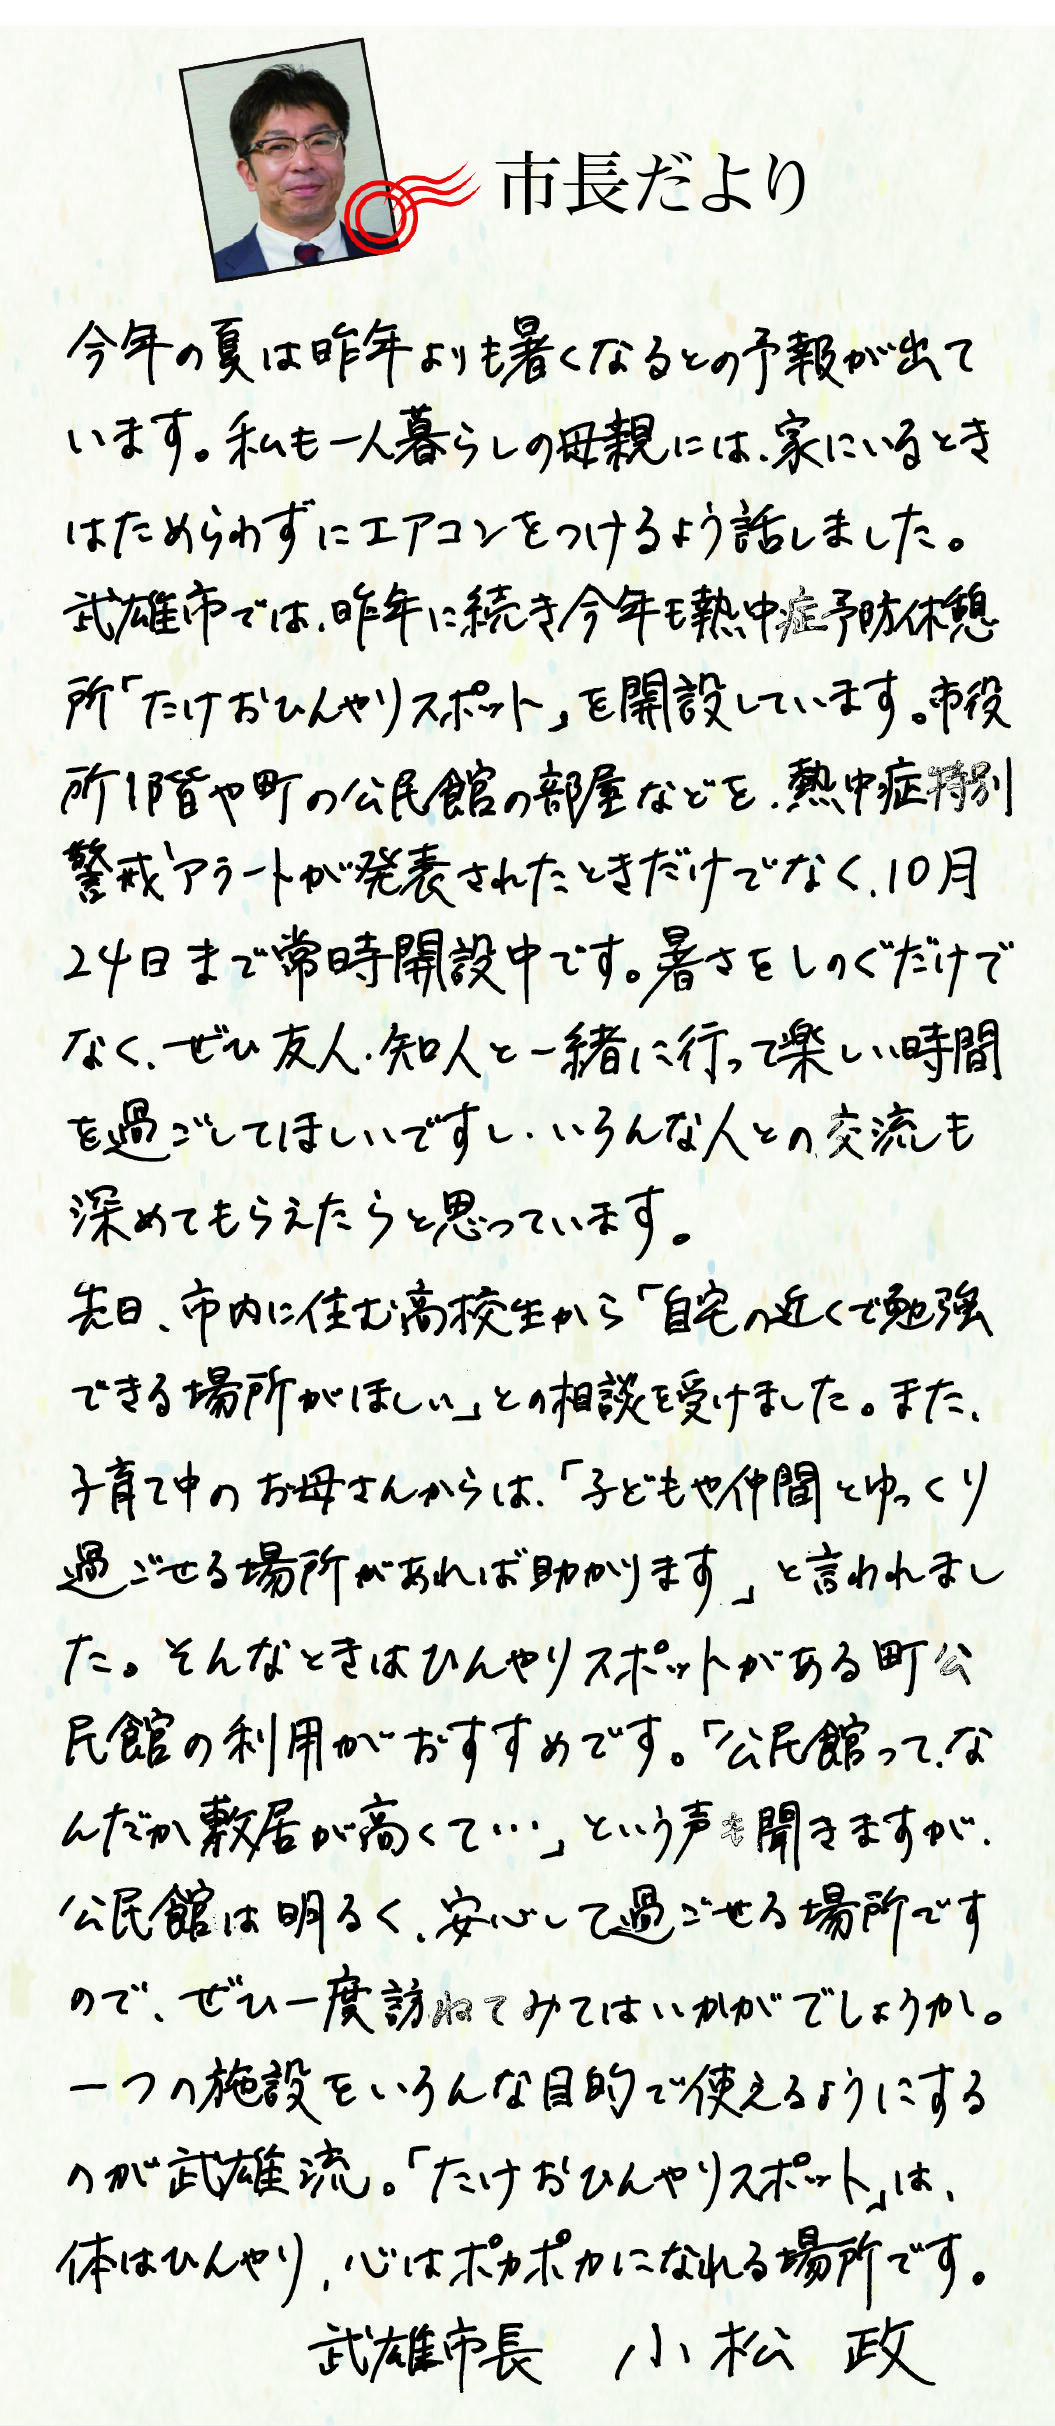 市長だより
今年の夏は昨年よりも暑くなるとの予報が出て
います。私も一人暮らしの母親には、家にいるとき
はためらわずにエアコンをつけるよう話しました。
武雄市では、昨年に続き今年も熱中症予防休憩
所「たけおひんやりスポット」を開設しています。市役
所1階や町の公民館の部屋などを、熱中症特別
警戒アラートが発表されたときだけでなく、10月
24日まで常時開設中です。暑さをしのぐだけで
なく、ぜひ友人・知人と一緒に行って楽しい時間
を過ごしてほしいですし、いろんな人との交流も
深めてもらえたらと思っています。
先日、市内に住む高校生から「自宅の近くで勉強
できる場所がほしい」との相談を受けました。また、
子育て中のお母さんからは、「子どもや仲間とゆっくり
過ごせる場所があれば助かります」と言われまし
た。そんなときはひんやりスポットがある町公
民館の利用がおすすめです。「公民館って、な
んだか敷居が高くて…」という声も聞きますが、
公民館は明るく、安心して過ごせる場所です
ので、ぜひ一度訪ねてみてはいかがでしょうか。
一つの施設をいろんな目的で使えるようにする
のが武雄流。「たけおひんやりスポット」は、
体はひんやり、心はポカポカになれる場所です。
武雄市長 小松 政